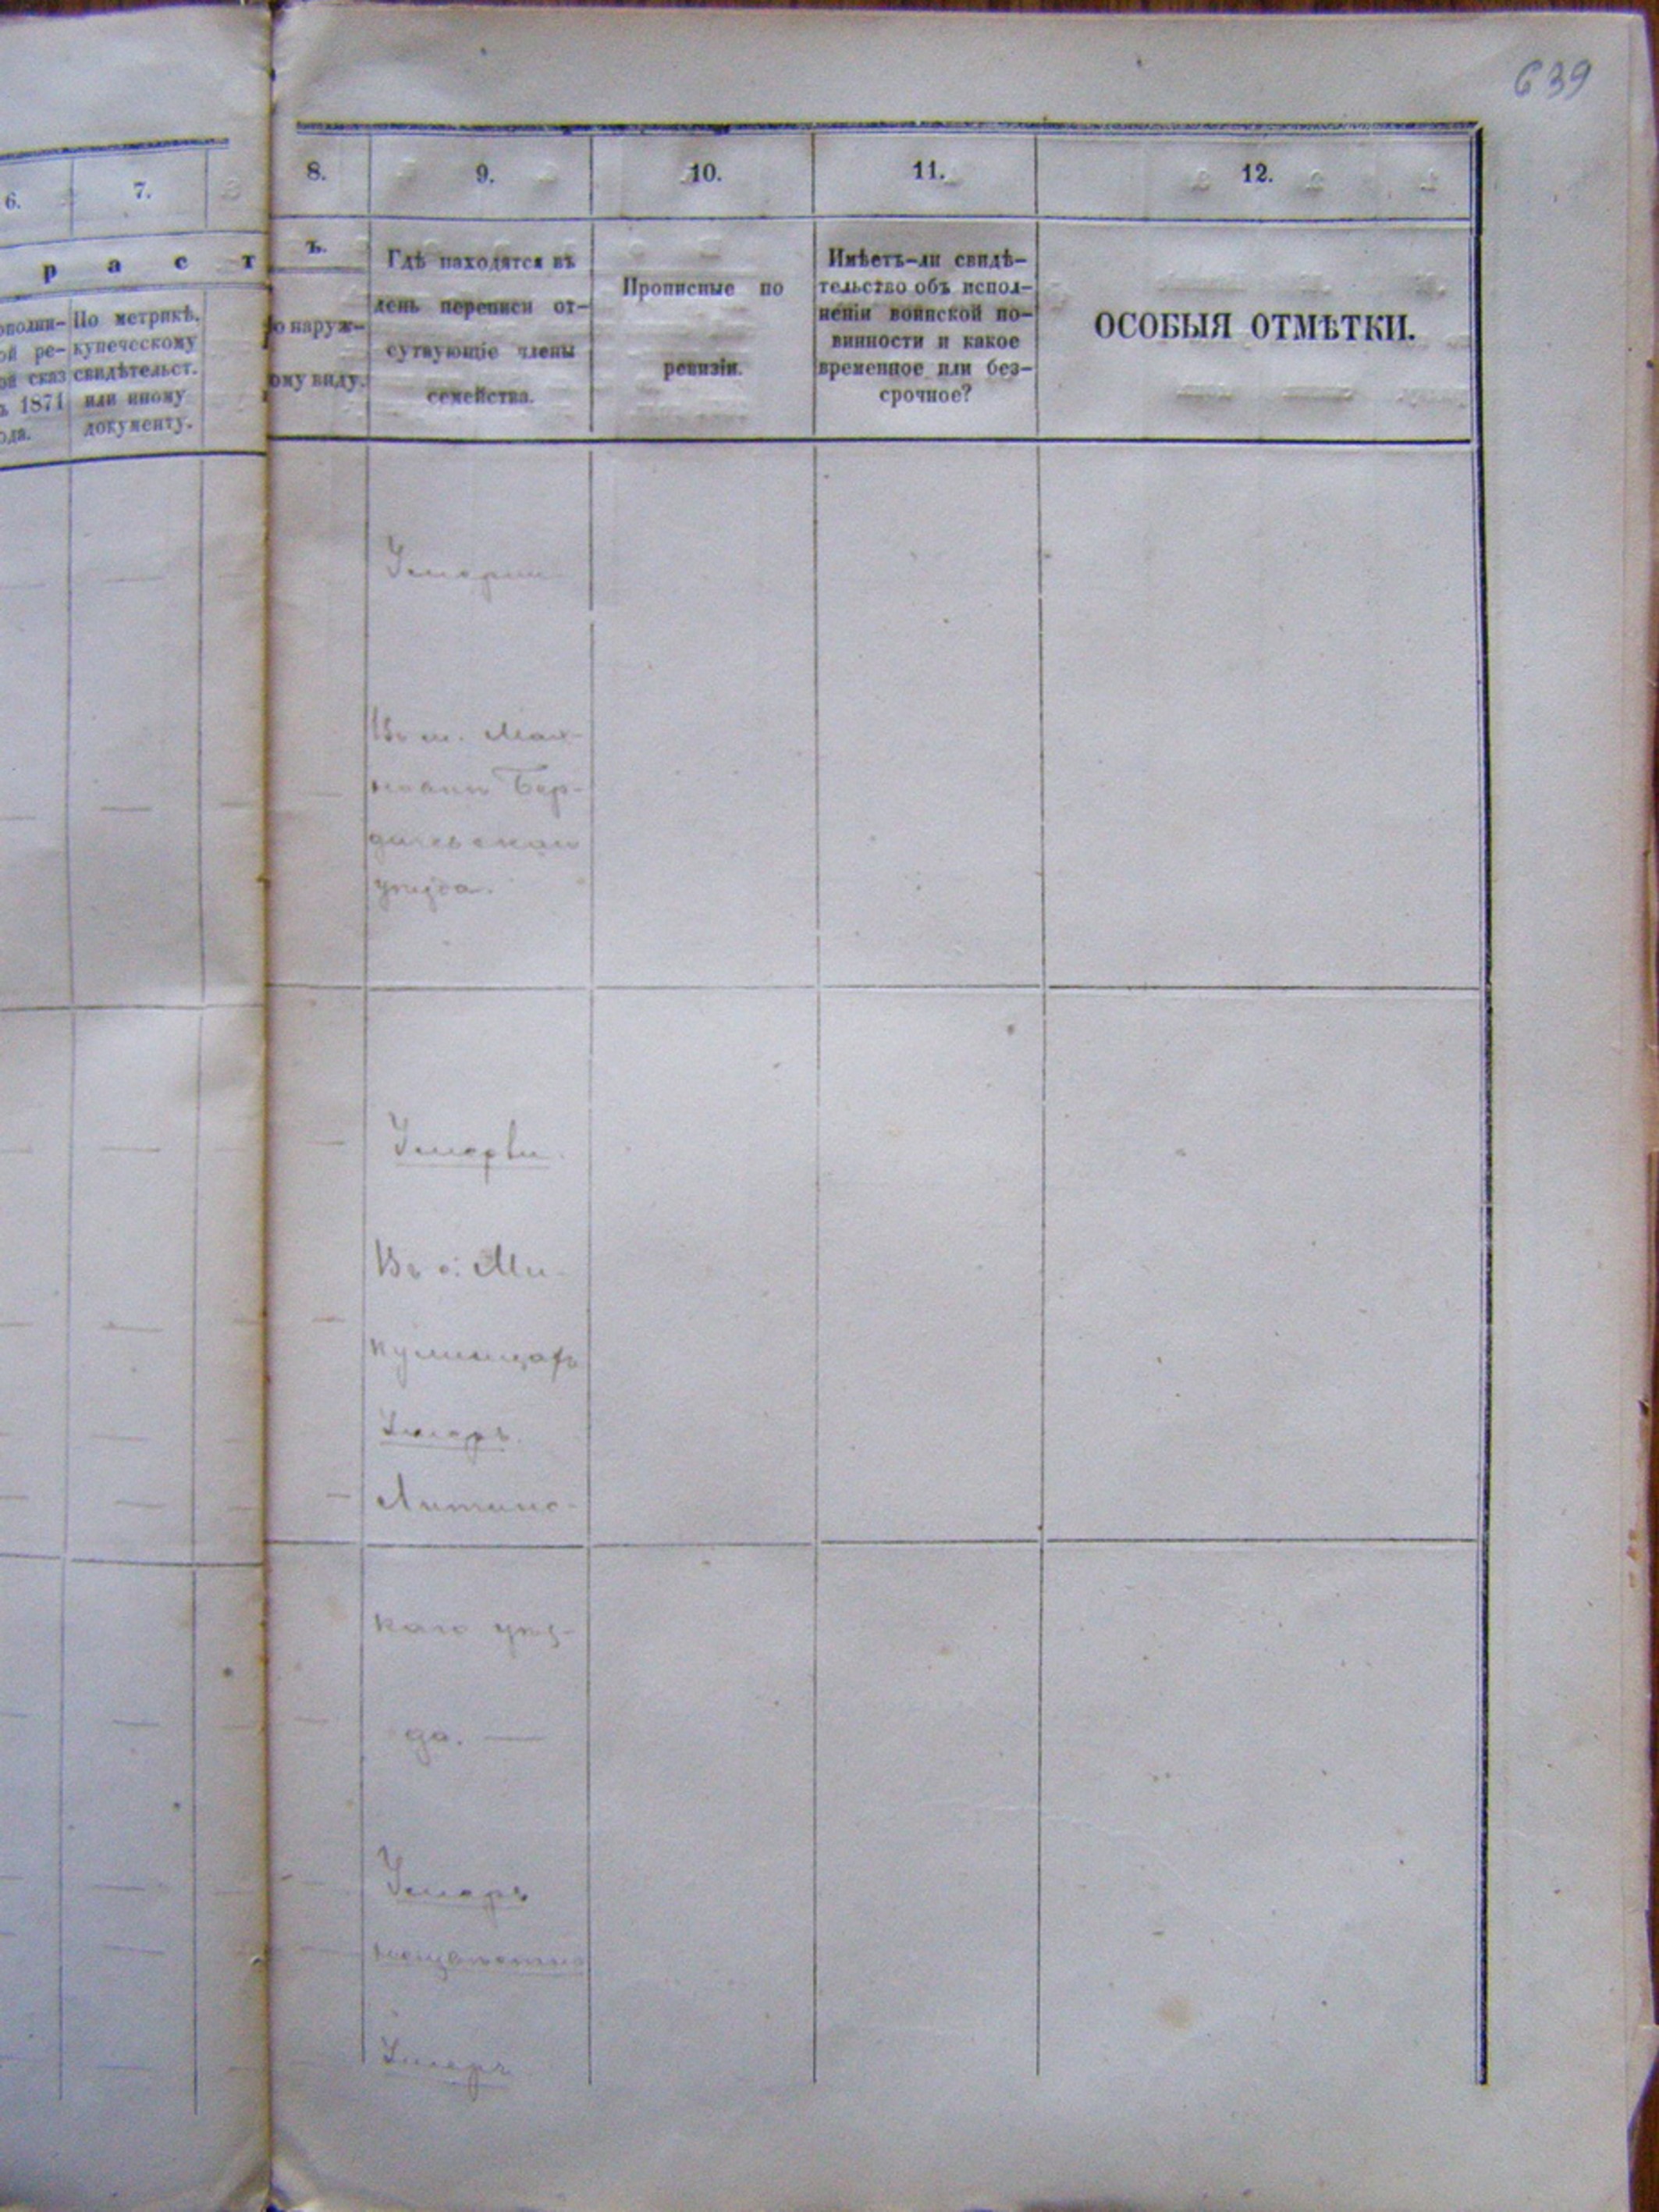 639
6.
7.
8.
9.
10.
11.
12.
р а с т
ъ.
ополни-
ой ре-
ой сказ
ъ 1871
ода.
По метрикѣ.
купеческому
свидѣтельст.
или иному
документу.
о наруж-
ому виду.
Гдѣ находятся въ
день переписи от-
сутвующіе члены
семейства.
Прописные по
ревизіи.
Имѣетъ-ли свидѣ-
тельство объ испол-
неніи воинской по-
винности и какое
временное или без-
срочное?
ОСОБЫЯ ОТМѢТКИ.
Умерли
Въ м. Мах-
новкѣ Бер-
дичевскаго
уѣзда.
Умерли.
Въ с. Ми-
кулинцахъ
Умеръ.
Литинс-
каго уѣз-
да. —
Умеръ
неизвѣстно
Умеръ